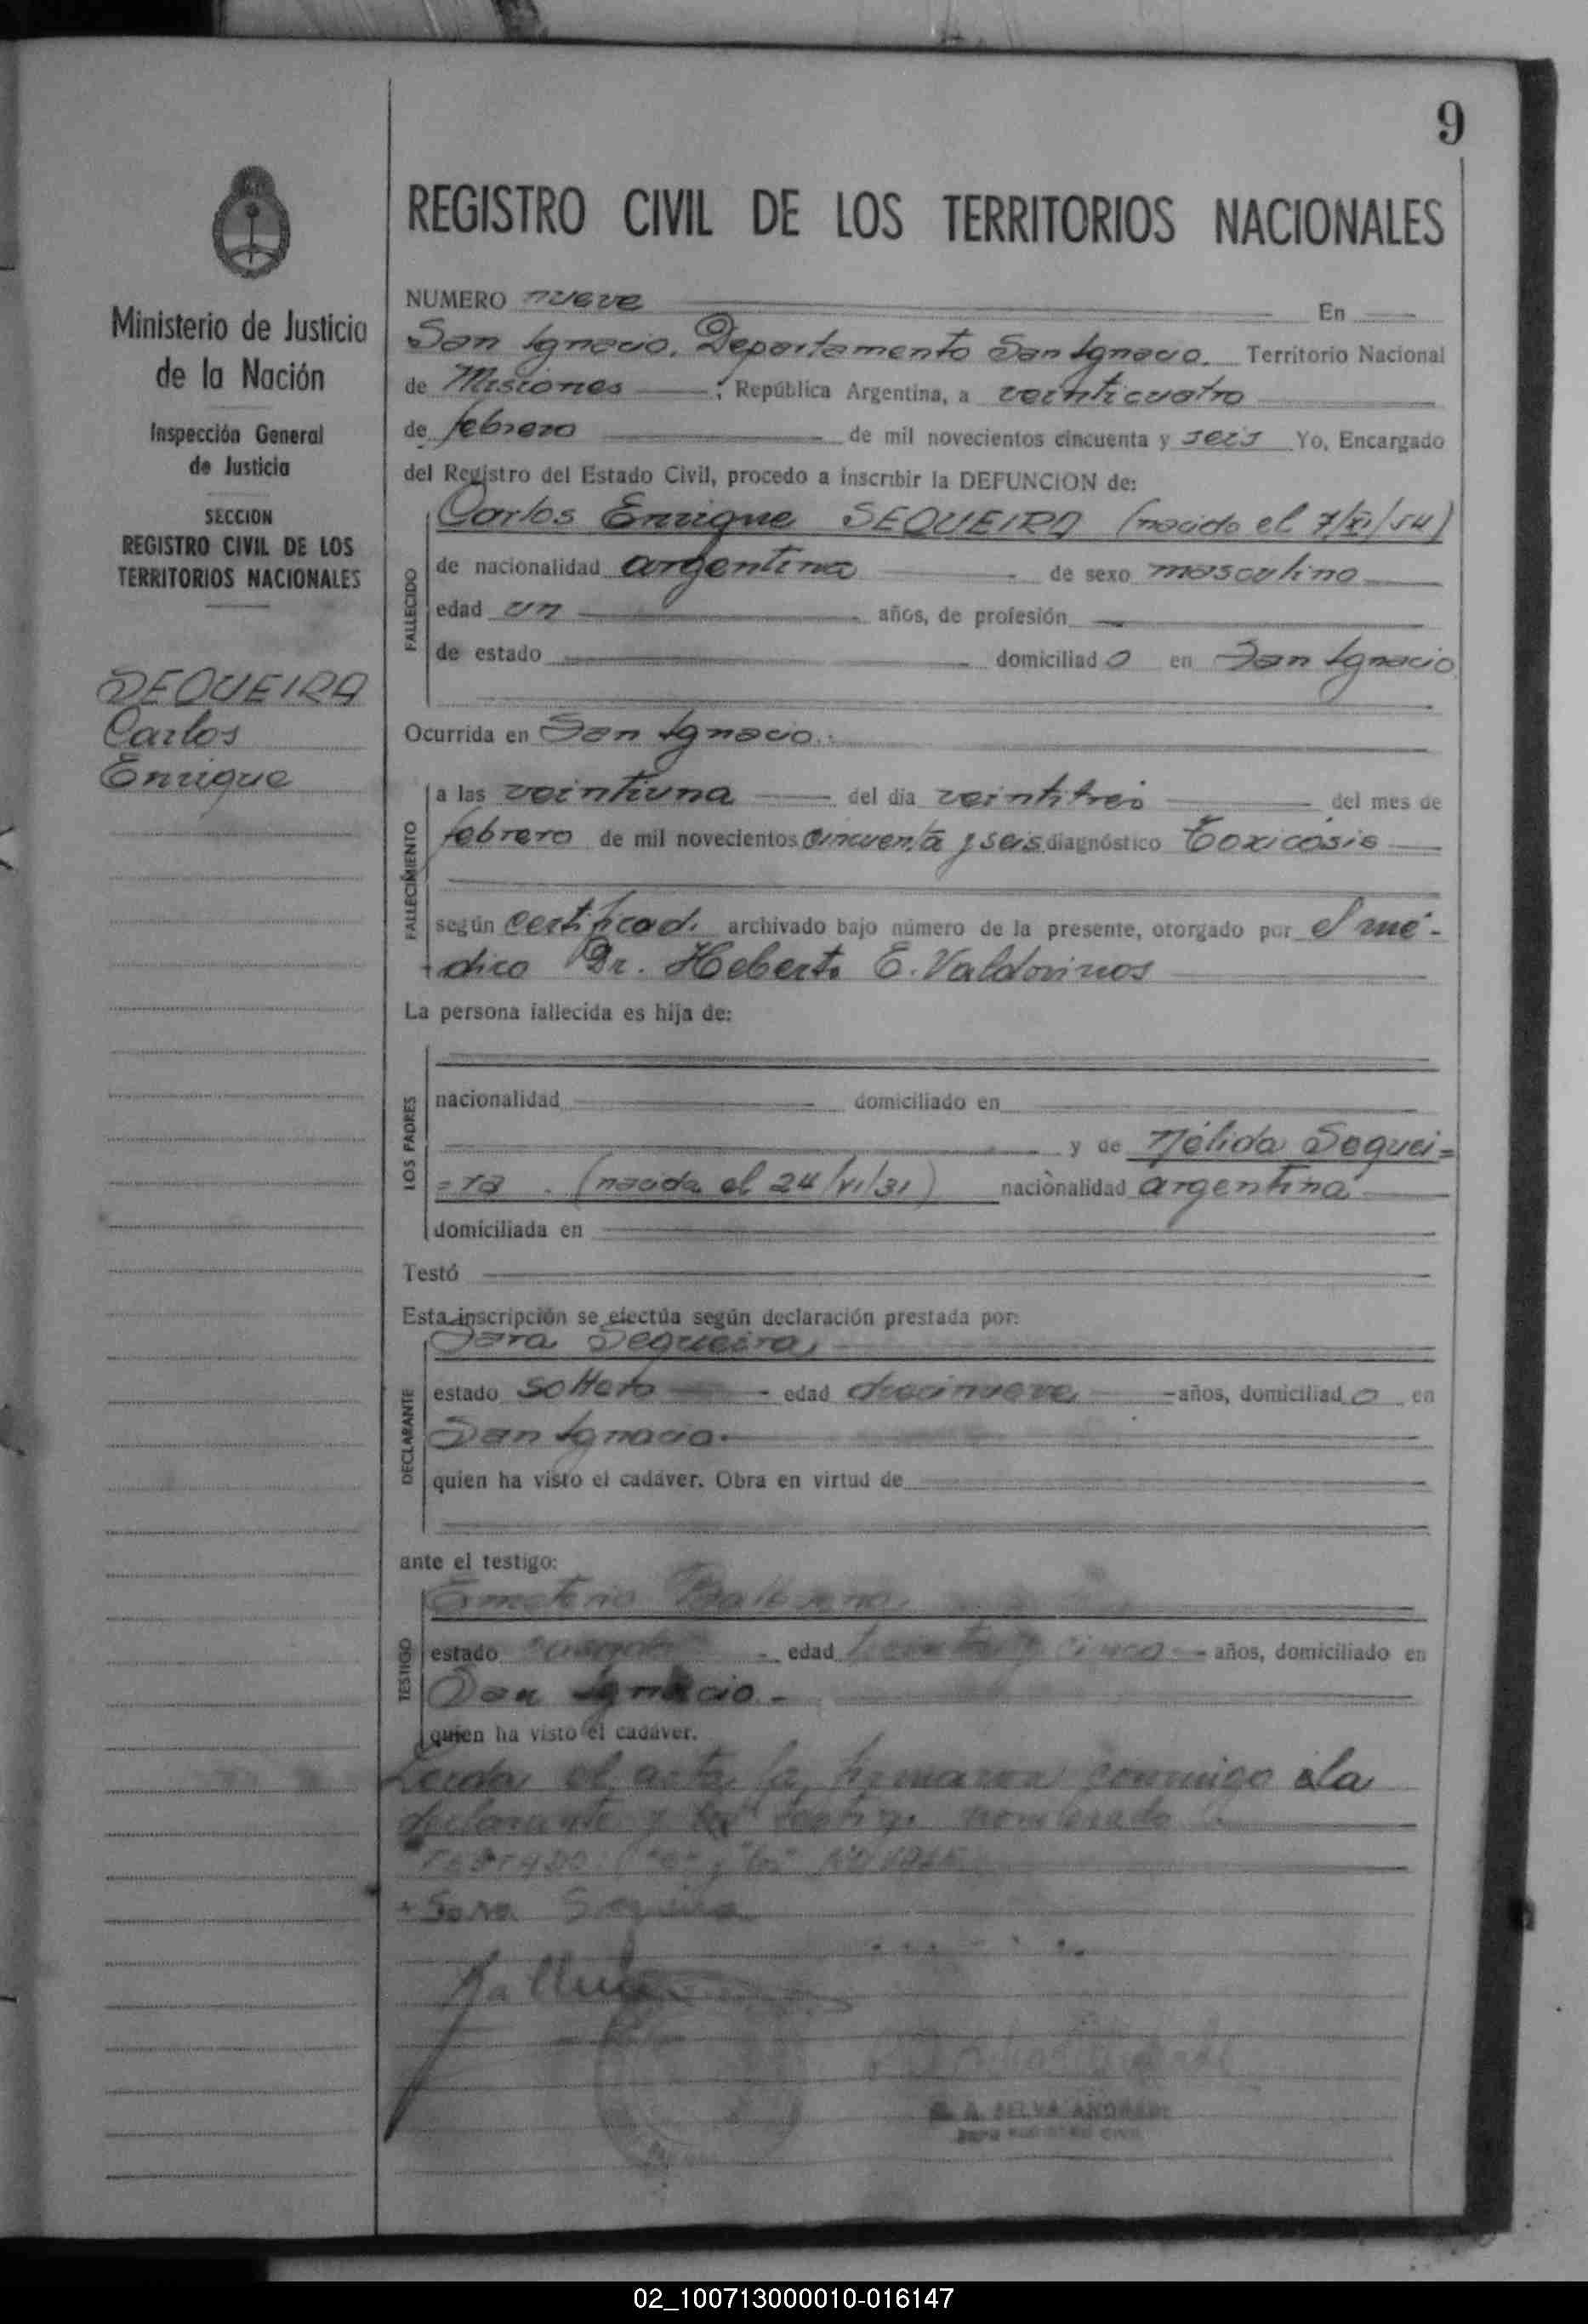 9
REGISTRO CIVIL DE LOS TERRITORIOS NACIONALES
Ministerio de Justicia
de la Nación
Inspección General
de Justicia
SECCION
REGISTRO CIVIL DE LOS
TERRITORIOS NACIONALES
SEQUEIRA
Carlos
Enrique
NUMERO nueve En
San Ignacio, Departamento San Ignacio. Territorio Nacional
de Misiones ; República Argentina, a veinticuatro
de febrero de mil novecientos cincuenta y seis Yo, Encargado
del Registro del Estado Civil, procedo a inscribir la DEFUNCION de:
Carlos Enrique SEQUEIRA (nacido el 7/XI/54)
FALLECIDO
de nacionalidad argentina de sexo masculino
edad un años, de profesión
de estado domiciliado en San Ignacio
Ocurrida en San Ignacio.
FALLECIMIENTO
a las veintiuna del día veintitrés del mes de
febrero de mil novecientos cincuenta y seis diagnóstico Toxicosis
según certificado archivado bajo número de la presente, otorgado por el mé-
dico Dr. Heberto E. Valdovinos
La persona fallecida es hija de:
LOS PADRES
nacionalidad domiciliado en
y de Nélida Sequei=
=ra. (nacida el 24/VI/31) nacionalidad argentina
domiciliada en
Testó
Esta inscripción se efectúa según declaración prestada por:
DECLARANTE
Sara Sequeira,
estado soltero edad diecinueve años, domiciliado en
San Ignacio.
quien ha visto el cadáver. Obra en virtud de
ante el testigo:
TESTIGO
Emeterio
estado edad y cinco años, domiciliado en
San Ignacio.-
quien ha visto el cadáver.
Leida el acta la firmaron conmigo la
declarante y testigo nombrado
Sara
A. SELVA ANDRADE
JEFE REGISTRO CIVIL
02_100713000010-016147